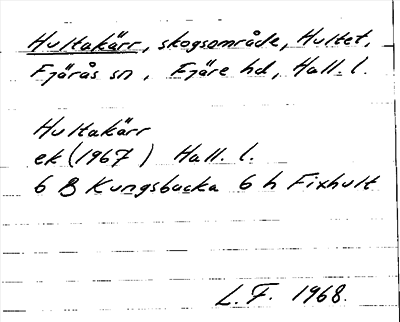 Hultakärr, skogsområde, Hultet,
Fjärås sn, Fjäre hd, Hall. l.
Hultakärr
ek (1967) Hall. l.
6 B Kungsbacka 6 h Fixhult
L. F. 1968.